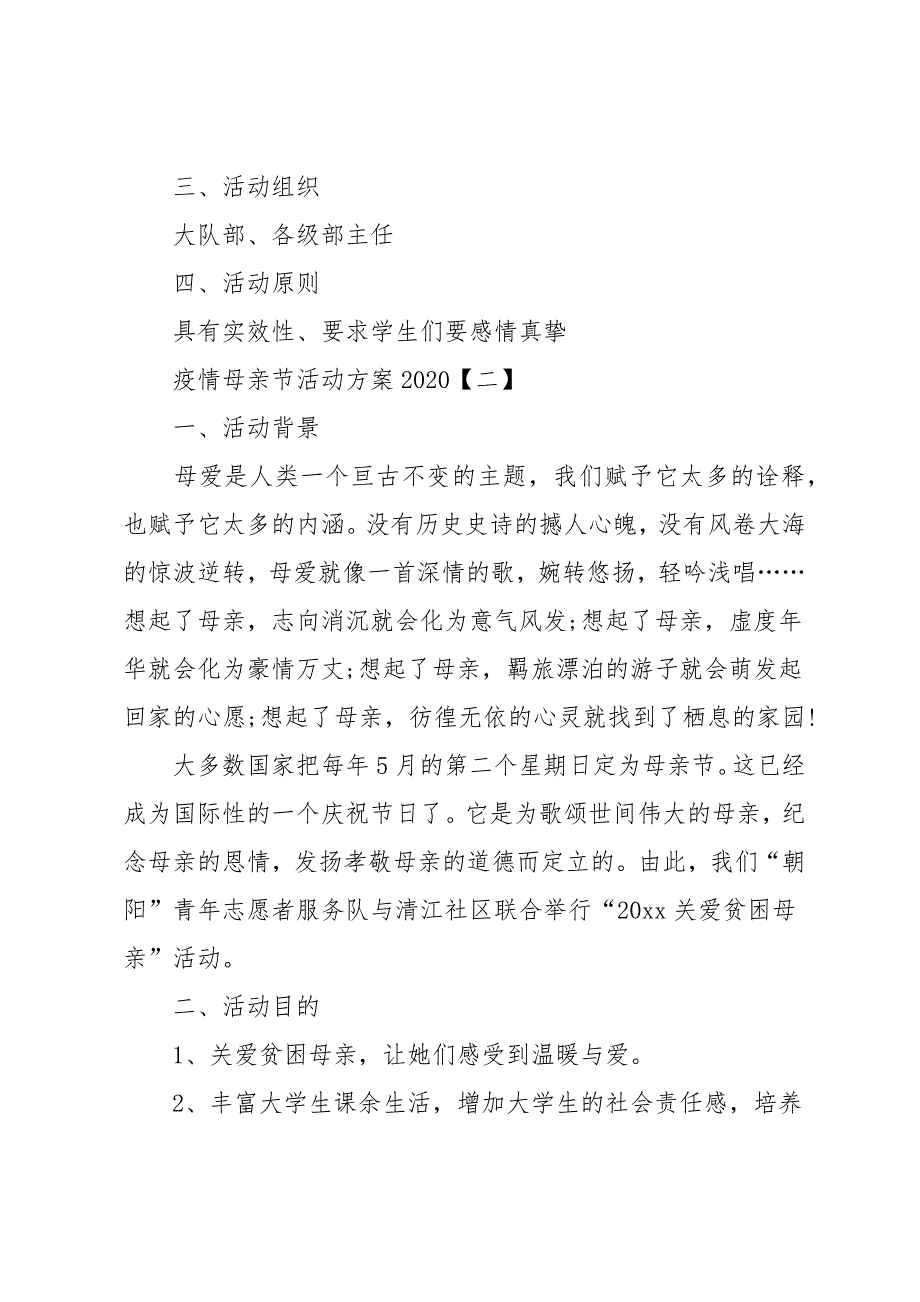 三、活动组织
大队部、各级部主任
四、活动原则
具有实效性、要求学生们要感情真挚
疫情母亲节活动方案 2020【二】
一、活动背景
母爱是人类一个亘古不变的主题，我们赋予它太多的诠释，
也赋予它太多的内涵。没有历史史诗的撼人心魄，没有风卷大海
的惊波逆转，母爱就像一首深情的歌，婉转悠扬，轻吟浅唱……
想起了母亲，志向消沉就会化为意气风发;想起了母亲，虚度年
华就会化为豪情万丈;想起了母亲，羁旅漂泊的游子就会萌发起
回家的心愿;想起了母亲，彷徨无依的心灵就找到了栖息的家园!
大多数国家把每年 5 月的第二个星期日定为母亲节。这已经
成为国际性的一个庆祝节日了。它是为歌颂世间伟大的母亲，纪
念母亲的恩情，发扬孝敬母亲的道德而定立的。由此，我们“朝
阳”青年志愿者服务队与清江社区联合举行“20xx 关爱贫困母
亲”活动。
二、活动目的
1、关爱贫困母亲，让她们感受到温暖与爱。
2、丰富大学生课余生活，增加大学生的社会责任感，培养